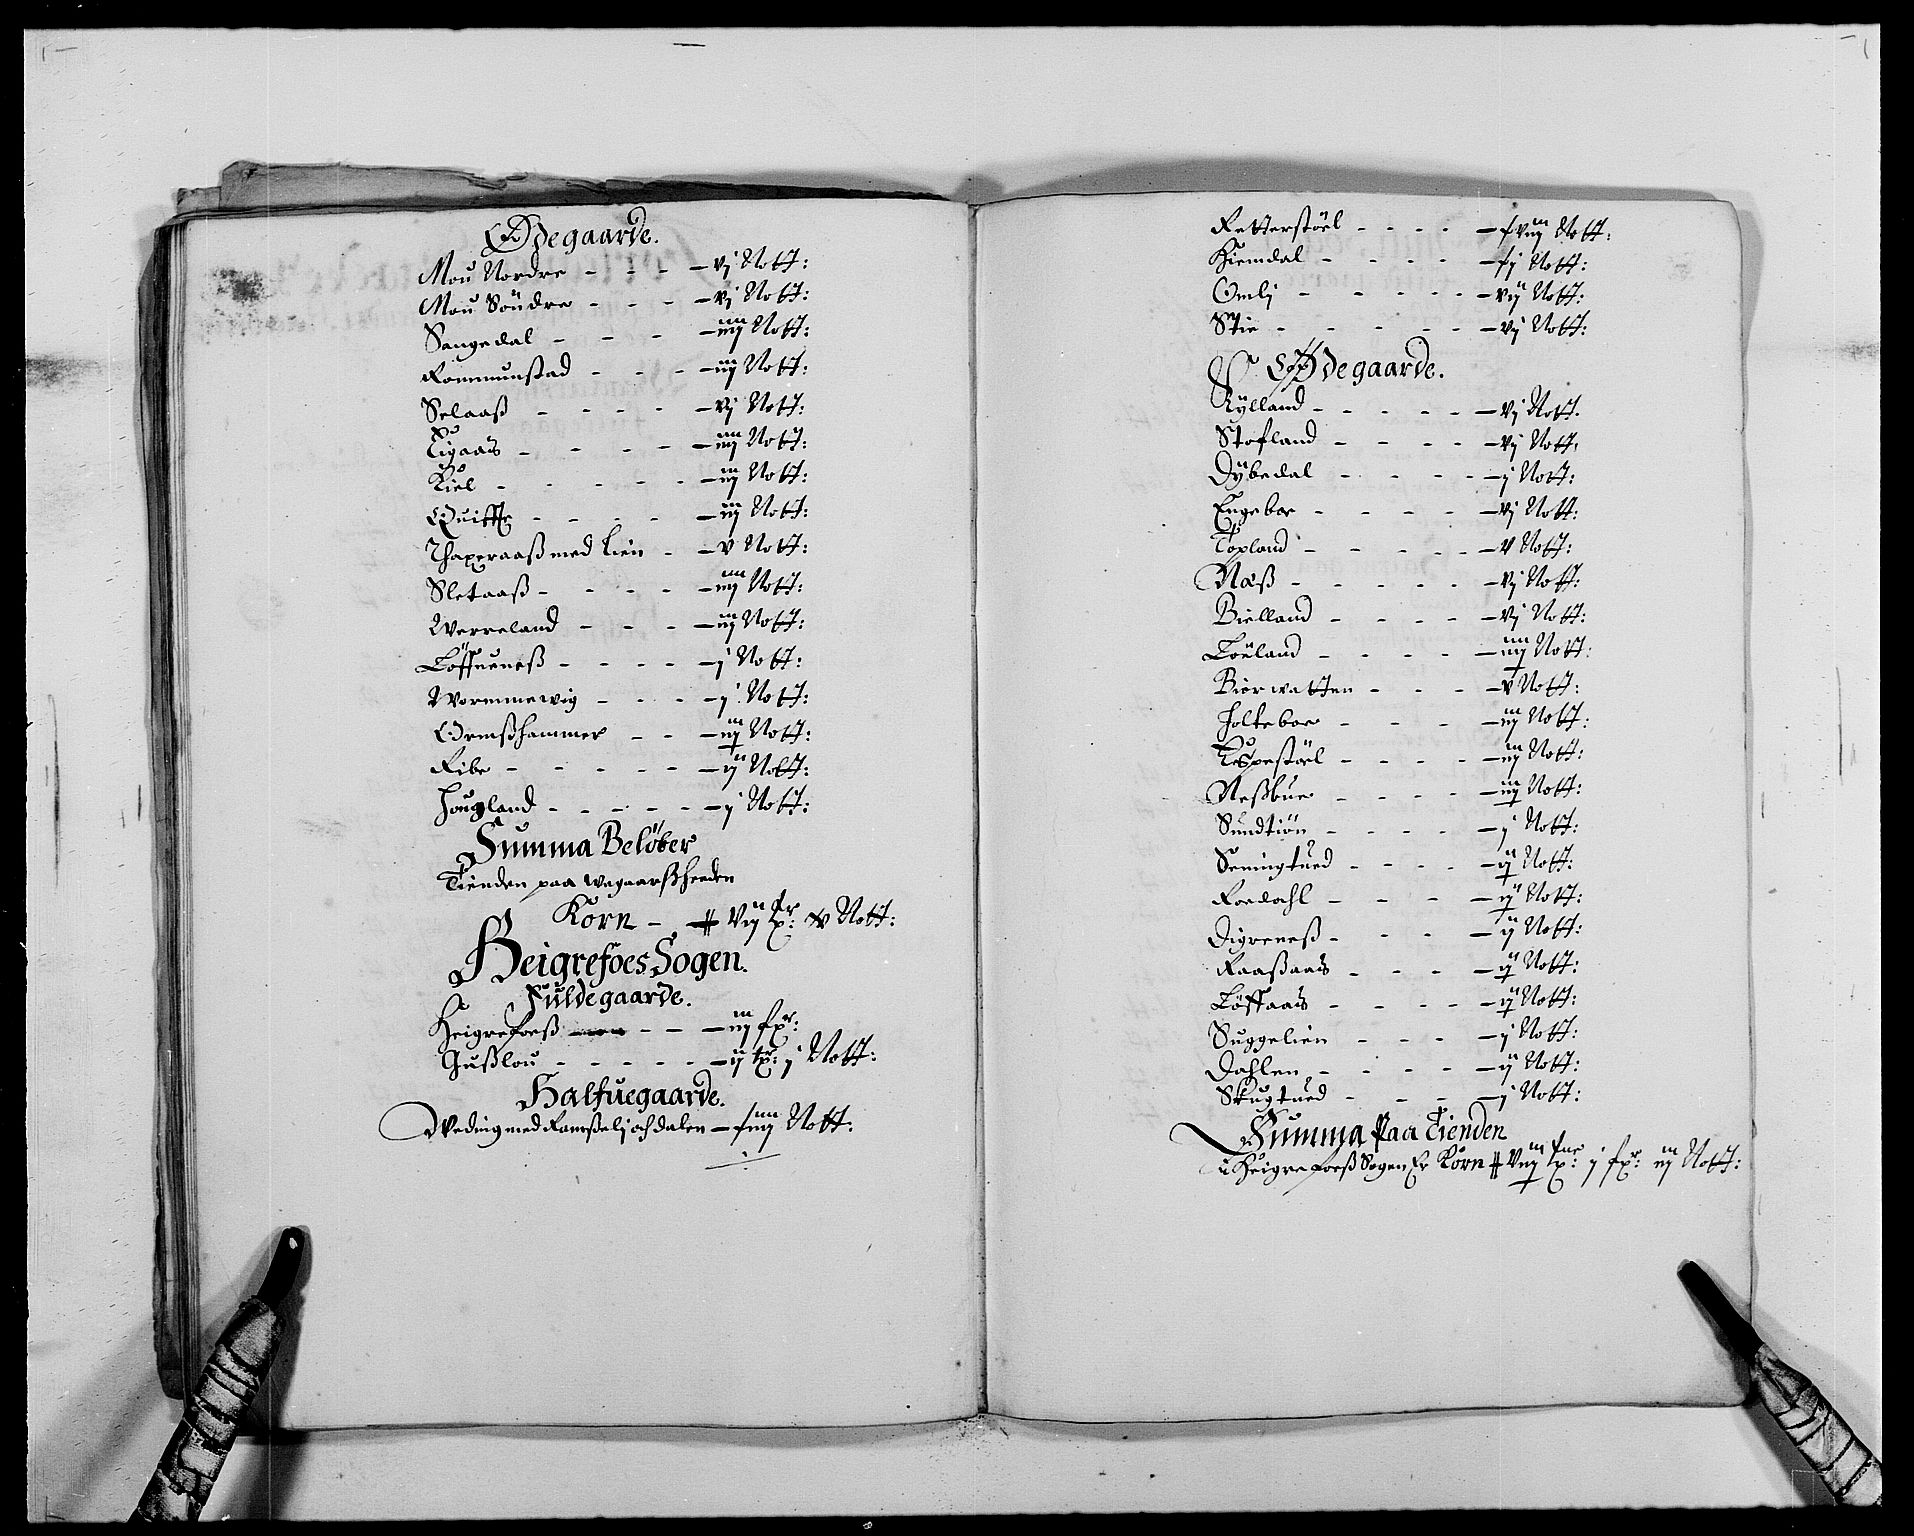 Ødegaarde.
Mou Nordre - - - - vj Nott:
Mou Söndre - - - - vj Nott:
Sangedal - - - - iiij Nott:
Rommunstad - - - - iij Nott:
Selaaß - - - - - vj Nott:
Ligaas - - - - - iiij Nott:
Kiel - - - - - - iij Nott:
Quiffte - - - - - iij Nott:
Thaxeraaß med Lien - - v Nott:
Sletaaß - - - - - iiij Nott:
Werreland - - - - iij Nott:
Löffueneß - - - - - j Nott:
Wormmewig - - - - j Nott:
Ormßhammer - - - iij Nott:
Ribe - - - - - - ij Nott:
Hougland - - - - - - j Nott:
Summa Belöber
Tienden paa Wegaarßheeden
Korn - vij Nott:
Heigrefoes Sogen.
Fulde gaarde.
Heigrefoeß - - - iij
Gußlou - - - - - ij j Nott:
Halfuegaarde.
Weding med Ramßelj och dalen - Nott:
Retterstöel - - - - Nott:
Hiemdal - - - - Nott:
Omlj - - - - - - vij Nott:
Stie - - - - - - vj Nott:
Ødegaarde.
Rylland - - - - - - vj Nott.
Stofland - - - - - vj Nott.
Dybedal - - - - - j Nott:
Engeboe - - - - - vj Nott:
Topland - - - - - - v Nott:
Næß - - - - - - vj Nott:
Bielland - - - - - vj Nott:
Löuland - - - - - iiij Nott:
Biörwatten - - - - v Nott:
Holteboe - - - - iij Nott:
Espestöel - - - - - iij Nott:
Neßbue - - - - - iij Nott:
Sundtiön - - - - - j Nott:
Seningtued - - - - - ij Nott:
Roedahl - - - - ij Nott:
Digreneß - - - - ij Nott:
Raaßaas - - - - ij Nott:
Löffaas - - - - - ij Nott:
Suggelien - - - - j Nott:
Dahlen - - - - - ij Nott:
Skugtued - - - - j Nott:
Summa Paa Tienden
i Heigrefoeß Sogen Er Korn j iij Nott: